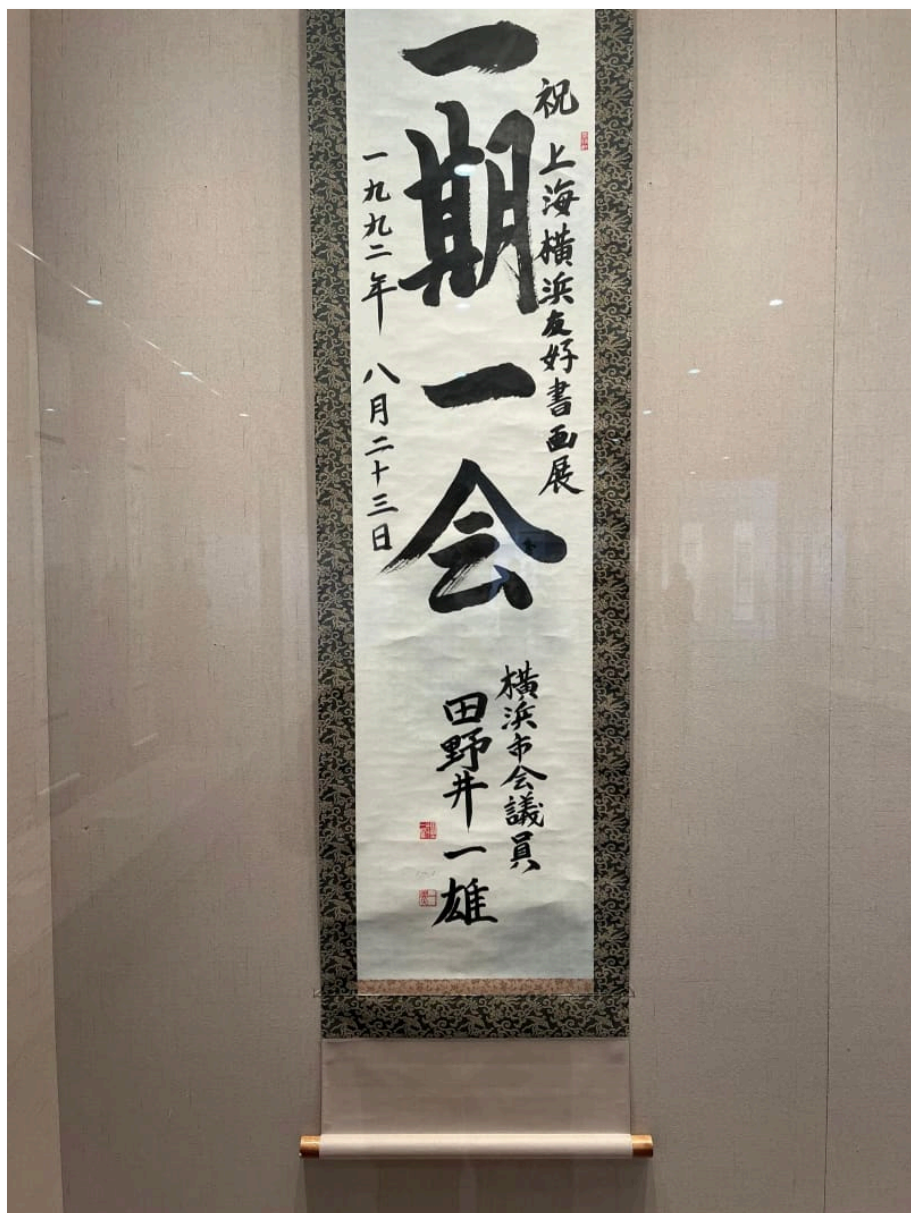 祝 上海横浜友好書画展
一期一会
一九九二年 八月二十三日
横浜市会議員
田野井一雄